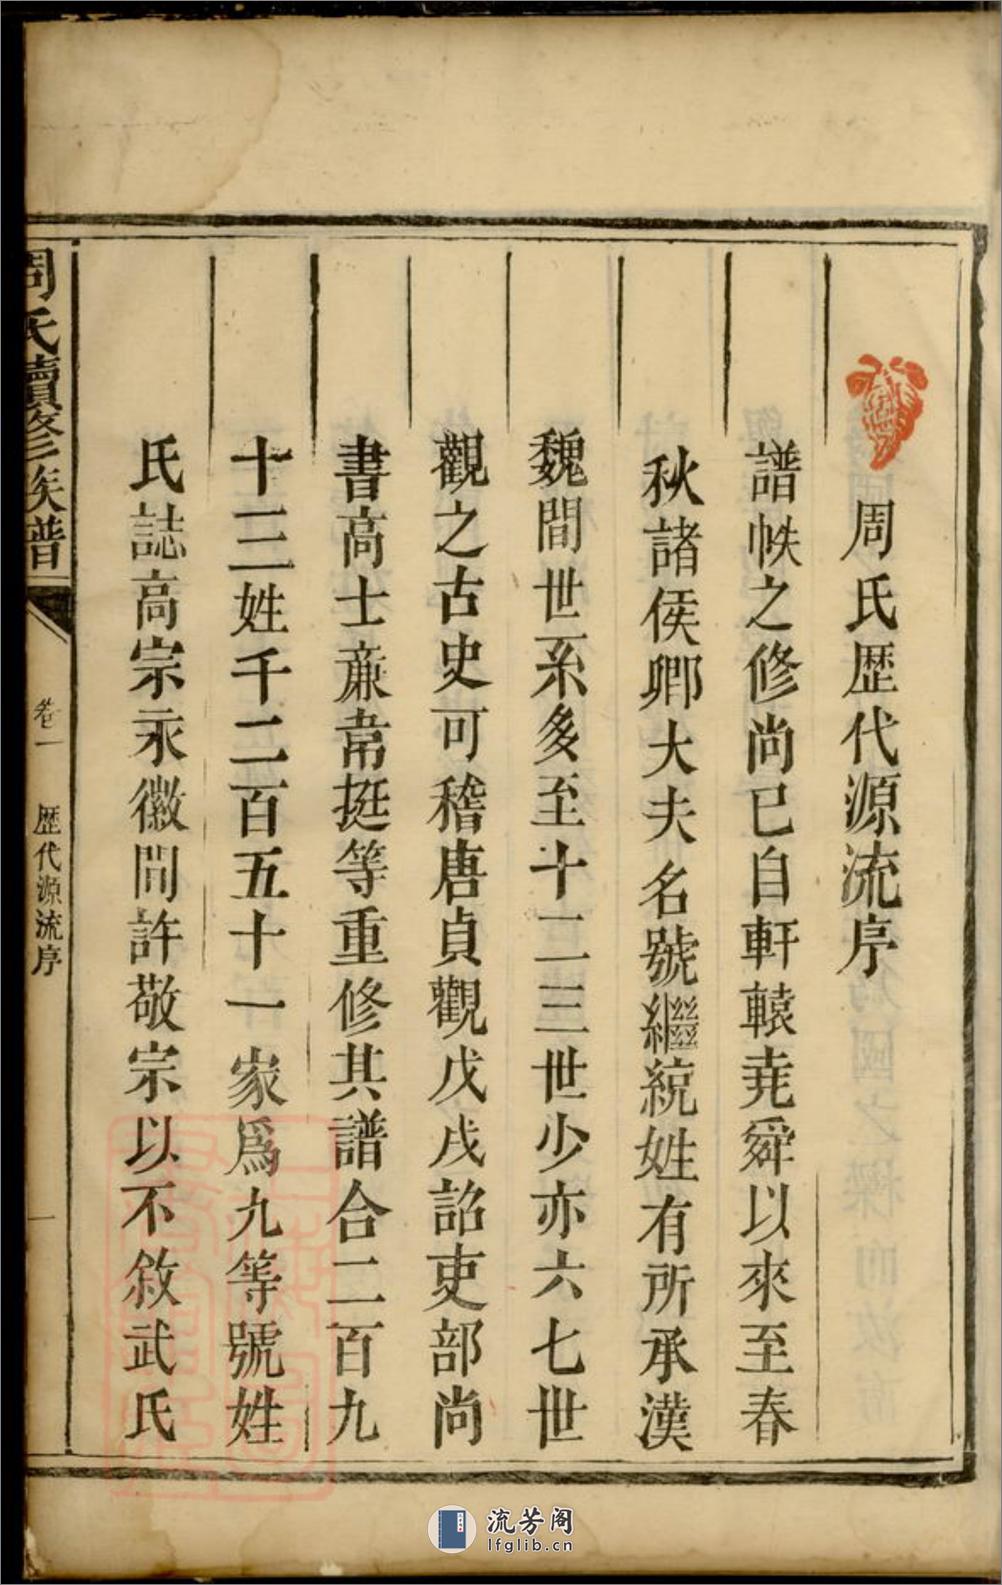 周氏歴代源流序
譜帙之修尚已自軒轅堯舜以來至春
秋諸侯卿大夫名號繼統姓有所承漢
魏間世系多至十二三世少亦六七世
觀之古史可稽唐貞觀戊戌詔吏部尚
書高士亷韋挺等重修其譜合二百九
十三姓千二百五十一家爲九等號姓
氏誌高宗永徽間許敬宗以不敘武氏
周氏續修族譜
卷一
歴代源流序
一
流芳阁
lfglib.cn